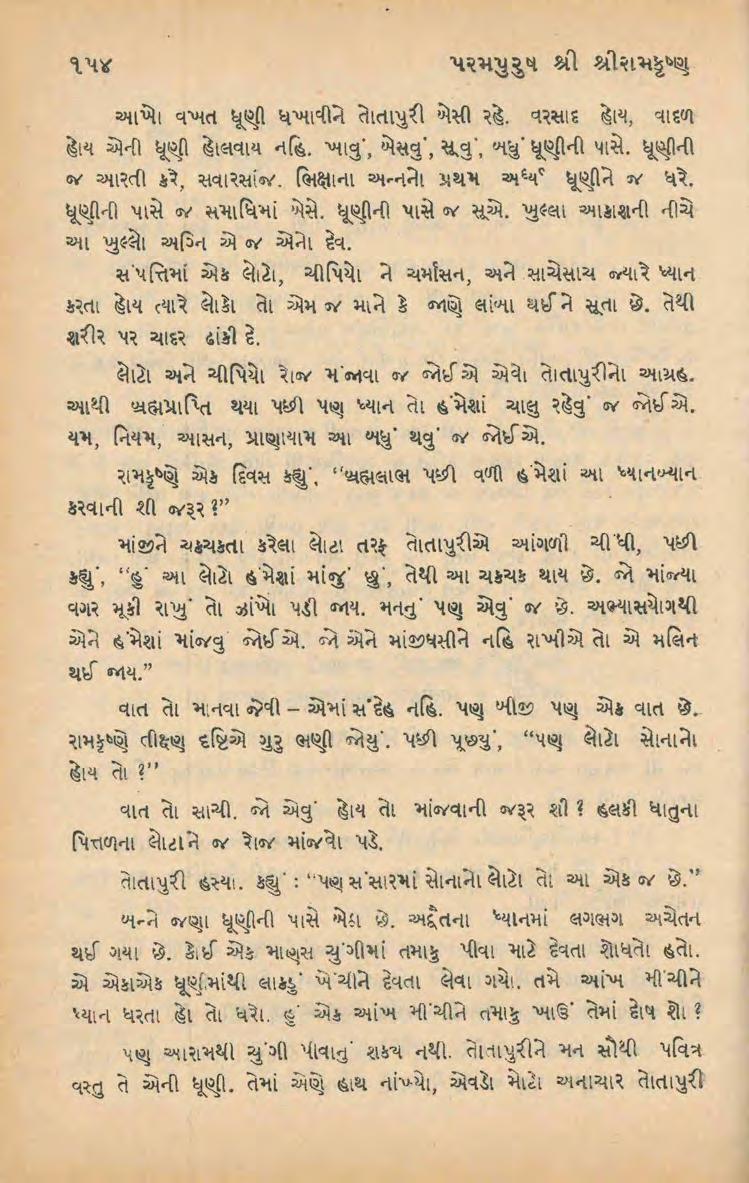 ૧૫૪ પરમપુરુષ શ્રી શ્રીરામકૃષ્ણ
આખો વખત ધૂણી ધખાવીને તોતાપુરી બેસી રહે. વરસાદ હોય, વાદળ
હોય એની ધૂણી હોલવાય નહિ. ખાવું, બેસવું, સૂવું, બધું ધૂણીની પાસે. ધૂણીની
જ આરતી કરે, સવારસાંજ. ભિક્ષાના અન્નનો પ્રથમ અર્ઘ્ય ધૂણીને જ ધરે.
ધૂણીની પાસે જ સમાધિમાં બેસે. ધૂણીની પાસે જ સૂએ. ખુલ્લા આકાશની નીચે
આ ખુલ્લો અગ્નિ એ જ એનો દેવ.
સંપત્તિમાં એક લોટો, ચીપિયો ને ચર્માસન, અને સાચેસાચ જ્યારે ધ્યાન
કરતા હોય ત્યારે લોકો તો એમ જ માને કે જાણે લાંબા થઈને સૂતા છે. તેથી
શરીર પર ચાદર ઢાંકી દે.
લોટો અને ચીપિયો રોજ મંજાવા જ જોઈએ એવો તોતાપુરીનો આગ્રહ.
આથી બ્રહ્મપ્રાપ્તિ થયા પછી પણ ધ્યાન તો હંમેશાં ચાલુ રહેવું જ જોઈએ.
યમ, નિયમ, આસન, પ્રાણાયામ આ બધું થવું જ જોઈએ.
રામકૃષ્ણે એક દિવસ કહ્યું, “બ્રહ્મલાભ પછી વળી હંમેશાં આ ધ્યાનબ્યાન
કરવાની શી જરૂર ?”
માંજીને ચકચકતા કરેલા લોટા તરફ તોતાપુરીએ આંગળી ચીંધી, પછી
કહ્યું, “હું આ લોટો હંમેશાં માંજું છું, તેથી આ ચકચક થાય છે. જો માંજ્યા
વગર મૂકી રાખું તો ઝાંખો પડી જાય. મનનું પણ એવું જ છે. અભ્યાસયોગથી
એને હંમેશાં માંજવુ જોઈએ. જો એને માંજીઘસીને નહિ રાખીએ તો એ મલિન
થઈ જાય.”
વાત તો માનવા જેવી – એમાં સંદેહ નહિ. પણ બીજી પણ એક વાત છે.
રામકૃષ્ણે તીક્ષ્ણ દૃષ્ટિએ ગુરુ ભણી જોયું. પછી પૂછ્યું, “પણ લોટો સોનાનો
હોય તો ?”
વાત તો સાચી. જો એવું હોય તો માંજવાની જરૂર શી ? હલકી ધાતુના
પિત્તળના લોટાને જ રોજ માંજવો પડે.
તોતાપુરી હસ્યા. કહ્યું : “પણ સંસારમાં સોનાનો લોટો તો આ એક જ છે.”
બન્ને જણા ધૂણીની પાસે બેઠા છે. અદ્વૈતના ધ્યાનમાં લગભગ અચેતન
થઈ ગયા છે. કોઈ એક માણસ ચુંગીમાં તમાકુ પીવા માટે દેવતા શોધતો હતો.
એ એકાએક ધૂણીમાંથી લાકડું ખેંચીને દેવતા લેવા ગયો. તમે આંખ મીંચીને
ધ્યાન ધરતા હો તો ધરો. હું એક આંખ મીંચીને તમાકુ ખાઉં તેમાં દોષ શો ?
પણ આરામથી ચુંગી પીવાનું શક્ય નથી. તોતાપુરીને મન સૌથી પવિત્ર
વસ્તુ તે એની ધૂણી. તેમાં એણે હાથ નાંખ્યો, એવડો મોટો અનાચાર તોતાપુરી